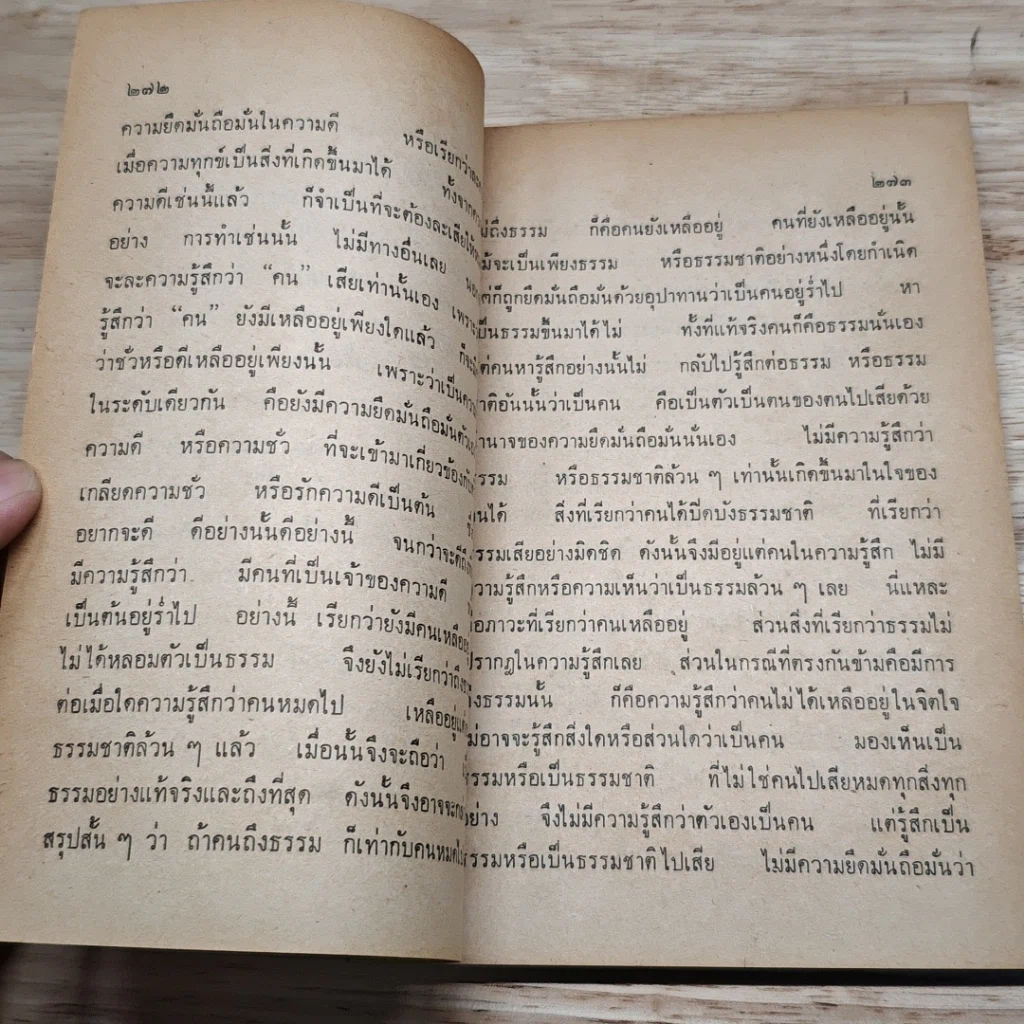 ๒๗๒
ความยึดมั่นถือมั่นในความดี หรือเรียกว่า
เมื่อความทุกข์เป็นสิ่งที่เกิดขึ้นมาได้
ความดีเช่นนี้แล้ว ก็จำเป็นที่จะต้องละเสียให้
อย่าง การทำเช่นนั้น ไม่มีทางอื่นเลย
จะละความรู้สึกว่า “คน” เสียเท่านั้นเอง
รู้สึกว่า “คน” ยังมีเหลืออยู่เพียงใดแล้ว
ว่าชั่วหรือดีเหลืออยู่เพียงนั้น เพราะว่าเป็น
ในระดับเดียวกัน คือยังมีความยึดมั่นถือมั่น
ความดี หรือความชั่ว ที่จะเข้ามาเกี่ยวข้อง
เกลียดความชั่ว หรือรักความดีเป็นต้น
อยากจะดี ดีอย่างนั้นดีอย่างนี้ จนกว่าจะดี
มีความรู้สึกว่า มีคนที่เป็นเจ้าของความดี
เป็นต้นอยู่ร่ำไป อย่างนี้ เรียกว่ายังมีคน
ไม่ได้หลอมตัวเป็นธรรม จึงยังไม่เรียกว่า
ต่อเมื่อใดความรู้สึกว่าคนหมดไป เหลืออยู่
ธรรมชาติล้วน ๆ แล้ว เมื่อนั้นจึงจะถือว่า
ธรรมอย่างแท้จริงและถึงที่สุด ดังนั้นจึงอาจจะ
สรุปสั้น ๆ ว่า ถ้าคนถึงธรรม ก็เท่ากับคนหมด
๒๗๓
ถึงธรรม ก็คือคนยังเหลืออยู่ คนที่ยังเหลืออยู่นั้น
จะเป็นเพียงธรรม หรือธรรมชาติอย่างหนึ่งโดยกำเนิด
ก็ถูกยึดมั่นถือมั่นด้วยอุปาทานว่าเป็นคนอยู่ร่ำไป หา
เป็นธรรมขึ้นมาได้ไม่ ทั้งที่แท้จริงคนก็คือธรรมนั่นเอง
คนหารู้สึกอย่างนั้นไม่ กลับไปรู้สึกต่อธรรม หรือธรรม
ชาติอันนั้นว่าเป็นคน คือเป็นตัวเป็นตนของตนไปเสียด้วย
ของความยึดมั่นถือมั่นนั่นเอง ไม่มีความรู้สึกว่า
ธรรม หรือธรรมชาติล้วน ๆ เท่านั้นเกิดขึ้นมาในใจของ
ได้ สิ่งที่เรียกว่าคนได้ปิดบังธรรมชาติ ที่เรียกว่า
ธรรมเสียอย่างมิดชิด ดังนั้นจึงมีอยู่แต่คนในความรู้สึก ไม่มี
ความรู้สึกหรือความเห็นว่าเป็นธรรมล้วน ๆ เลย นี่แหละ
ภาวะที่เรียกว่าคนเหลืออยู่ ส่วนสิ่งที่เรียกว่าธรรมไม่
ปรากฏในความรู้สึกเลย ส่วนในกรณีที่ตรงกันข้ามคือมีการ
ถึงธรรมนั้น ก็คือความรู้สึกว่าคนไม่ได้เหลืออยู่ในจิตใจ
ไม่อาจจะรู้สึกสิ่งใดหรือส่วนใดว่าเป็นคน มองเห็นเป็น
ธรรมหรือเป็นธรรมชาติ ที่ไม่ใช่คนไปเสียหมดทุกสิ่งทุก
อย่าง จึงไม่มีความรู้สึกว่าตัวเองเป็นคน แต่รู้สึกเป็น
ธรรมหรือเป็นธรรมชาติไปเสีย ไม่มีความยึดมั่นถือมั่นว่า